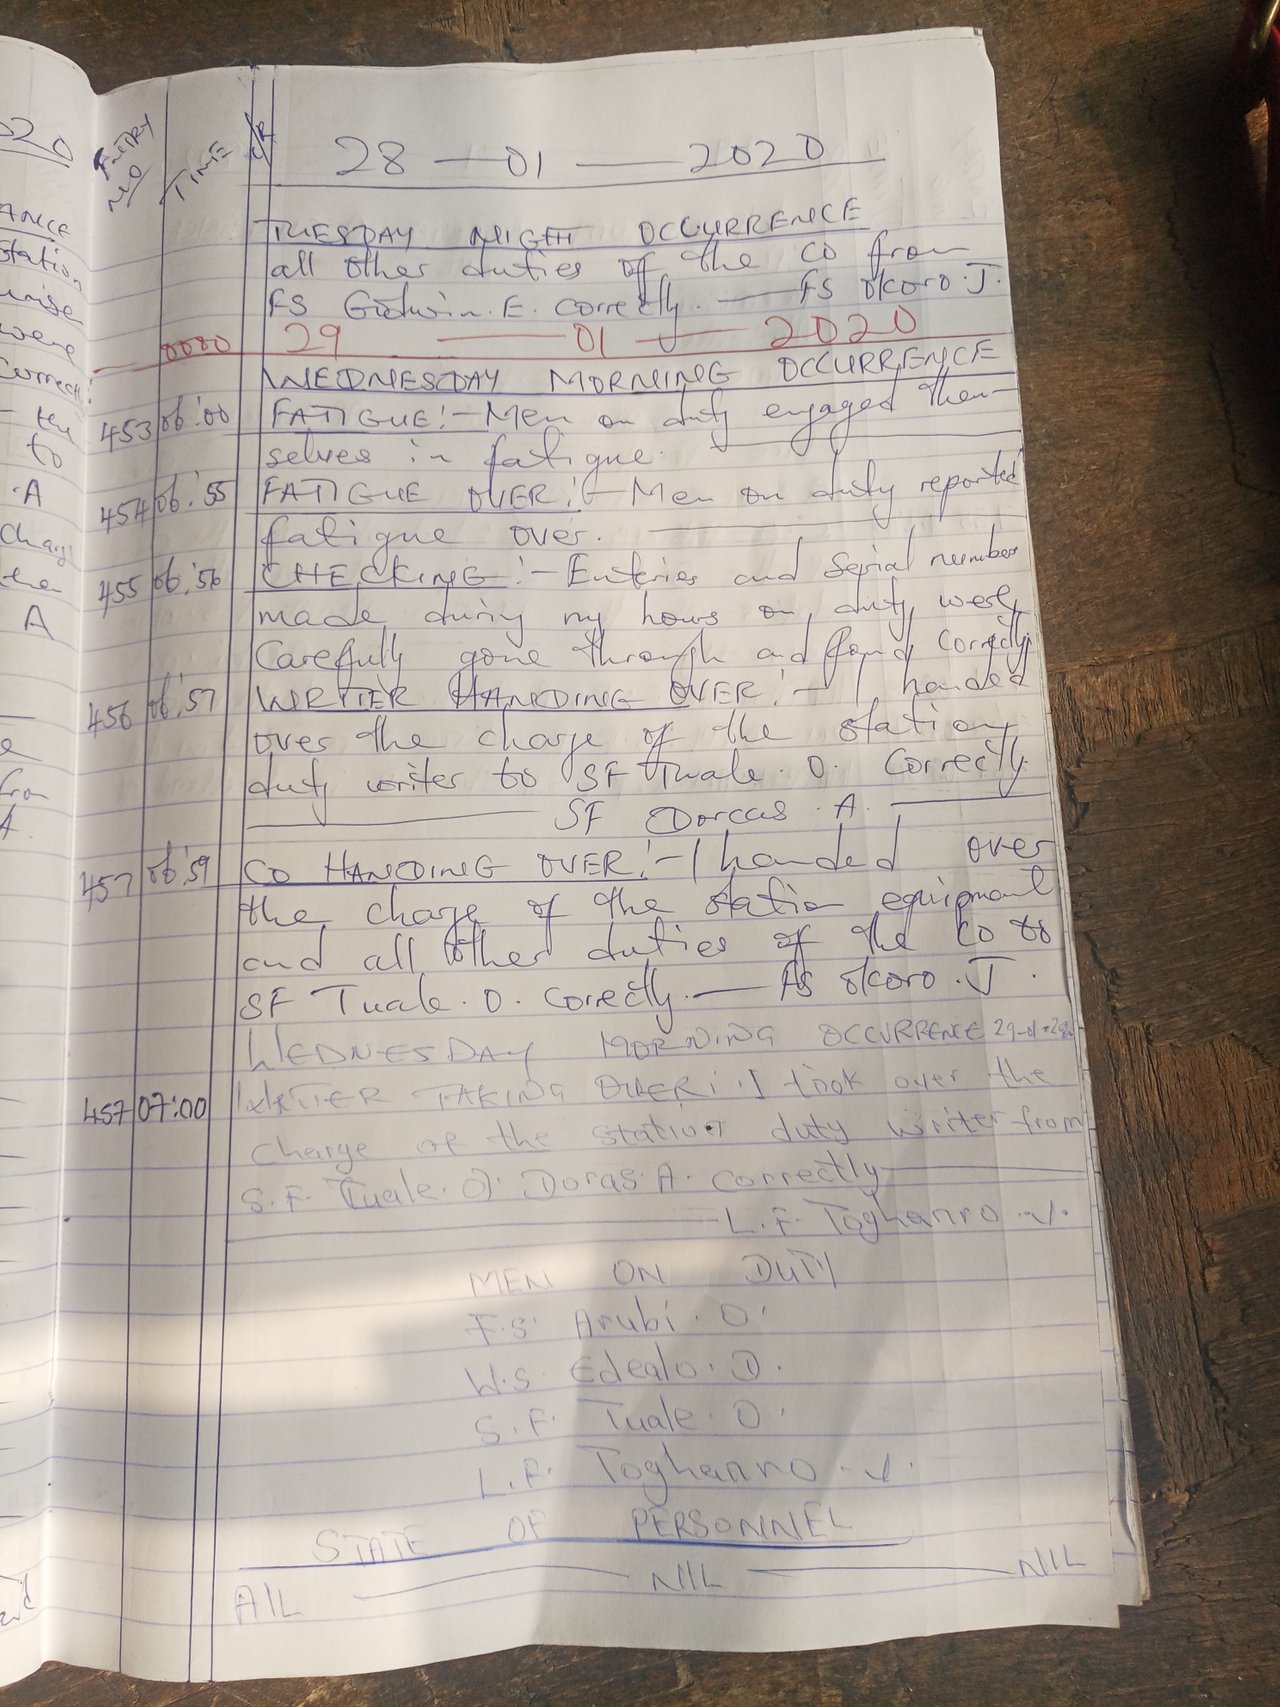 020
ANCE
Station
were
Correctly
the
to
A
Charge
the
A
from
A.
ENTRY NO TIME C/R
28 — 01 — 2020
TUESDAY NIGTH OCCURRENCE
all other duties of the CO from
FS Godwin. E. correctly. — FS Okoro. J.
0000 29 — 01 — 2020
WEDNESDAY MORNING OCCURRENCE
453 06:00 FATIGUE:- Men on duty engaged them-
selves in fatigue.
454 06:55 FATIGUE OVER:- Men on duty reported
fatigue over.
455 06:56 CHECKING:- Entries and Serial number
made during my hours on duty were
Carefully gone through and found correctly
456 06:57 WRITER HANDING OVER:- I handed
over the charge of the station
duty writer to SF Tuale. O. Correctly
— SF Dorcas. A. —
457 06:59 CO HANDING OVER:- I handed over
the charge of the station equipment
and all other duties of the CO to
SF Tuale. O. Correctly. — FS Okoro. J.
WEDNESDAY MORNING OCCURRENCE 29-01-2020
457 07:00 WRITER TAKING OVER:- I took over the
charge of the station duty writer from
S.F. Tuale. O. Doras. A. correctly —
— L.F. Toghanro. V.
MEN ON DUTY
F.S. Arubi. O.
W.S. Edealo. D.
S.F. Tuale. O.
L.F. Toghanro. V.
STATE OF PERSONNEL
AIL — NIL — NIL